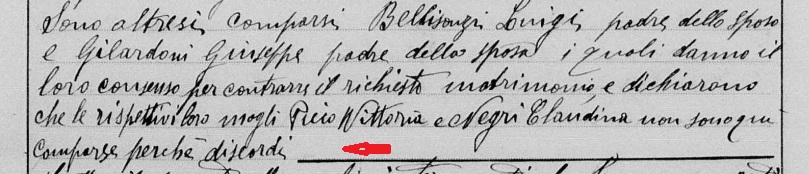 Sono altresì comparsi Bellisougi Luigi padre dello sposo
e Gilardoni Giuseppe padre della sposa i quali danno il
loro consenso per contrarre il richiesto matrimonio e dichiarono
che le rispettivi loro mogli Picco Vittoria e Negri Claudina non sono qui
comparse perchè discordi